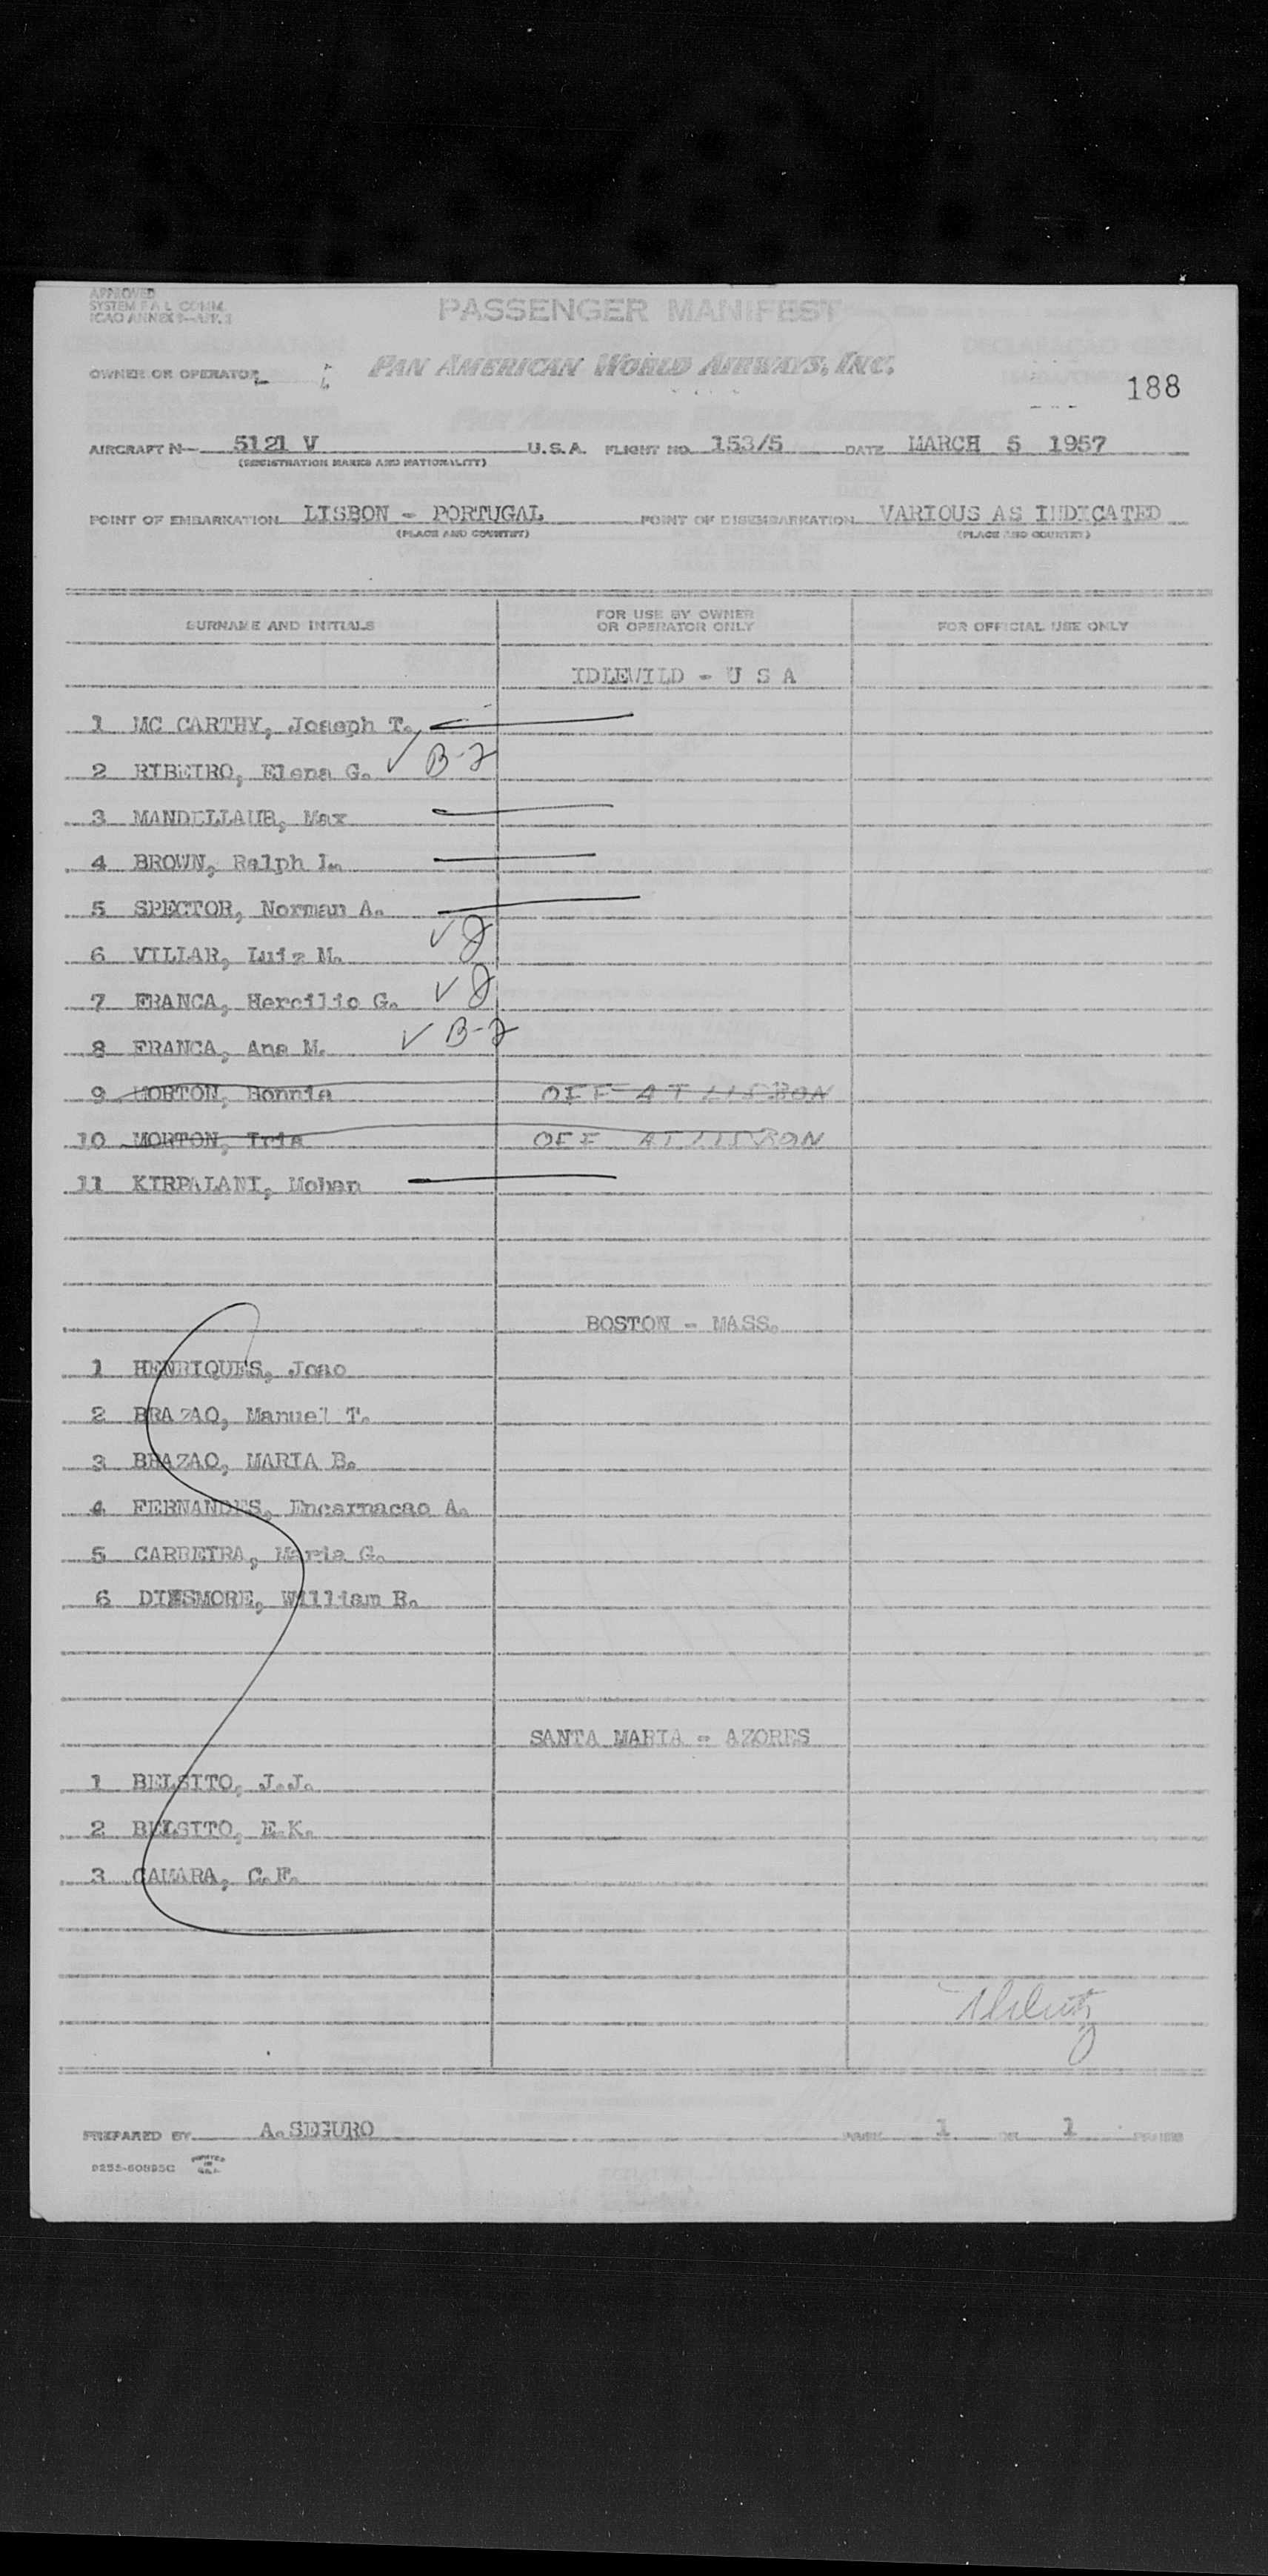 APPROVED
SYSTEM F A L COMM.
ICAO ANNEX 9—APP. 3
PASSENGER MANIFEST
OWNER OR OPERATOR
PAN AMERICAN WORLD AIRWAYS, INC.
188
AIRCRAFT N— 5121 V U.S.A. FLIGHT NO. 153/5 DATE MARCH 5 1957
(REGISTRATION MARKS AND NATIONALITY)
POINT OF EMBARKATION LISBON - PORTUGAL POINT OF DISEMBARKATION VARIOUS AS INDICATED
(PLACE AND COUNTRY) (PLACE AND COUNTRY)
SURNAME AND INITIALS FOR USE BY OWNER OR OPERATOR ONLY FOR OFFICIAL USE ONLY
IDLEWILD - U S A
1 MC CARTHY, Joseph T.
2 RIBEIRO, Elena G. ✓ B-2
3 MANDELLAUB, Max
4 BROWN, Ralph L.
5 SPECTOR, Norman A.
6 VILLAR, Luiz M. ✓
7 FRANCA, Hercilio G. ✓
8 FRANCA, Ana M. ✓ B-2
9 MORTON, Bonnie OFF AT LISBON
10 MORTON, Iris OFF AT LISBON
11 KIRPALANI, Mohan
BOSTON - MASS.
1 HENRIQUES, Joao
2 BRAZAO, Manuel T.
3 BRAZAO, MARIA B.
4 FERNANDES, Encarnacao A.
5 CARREIRA, Maria G.
6 DINSMORE, William B.
SANTA MARIA - AZORES
1 BELSITO, J.J.
2 BELSITO, E.K.
3 CAMARA, C.F.
PREPARED BY A. SEGURO PAGE 1 OF 1 PAGES
9255-60895C PRINTED IN U.S.A.